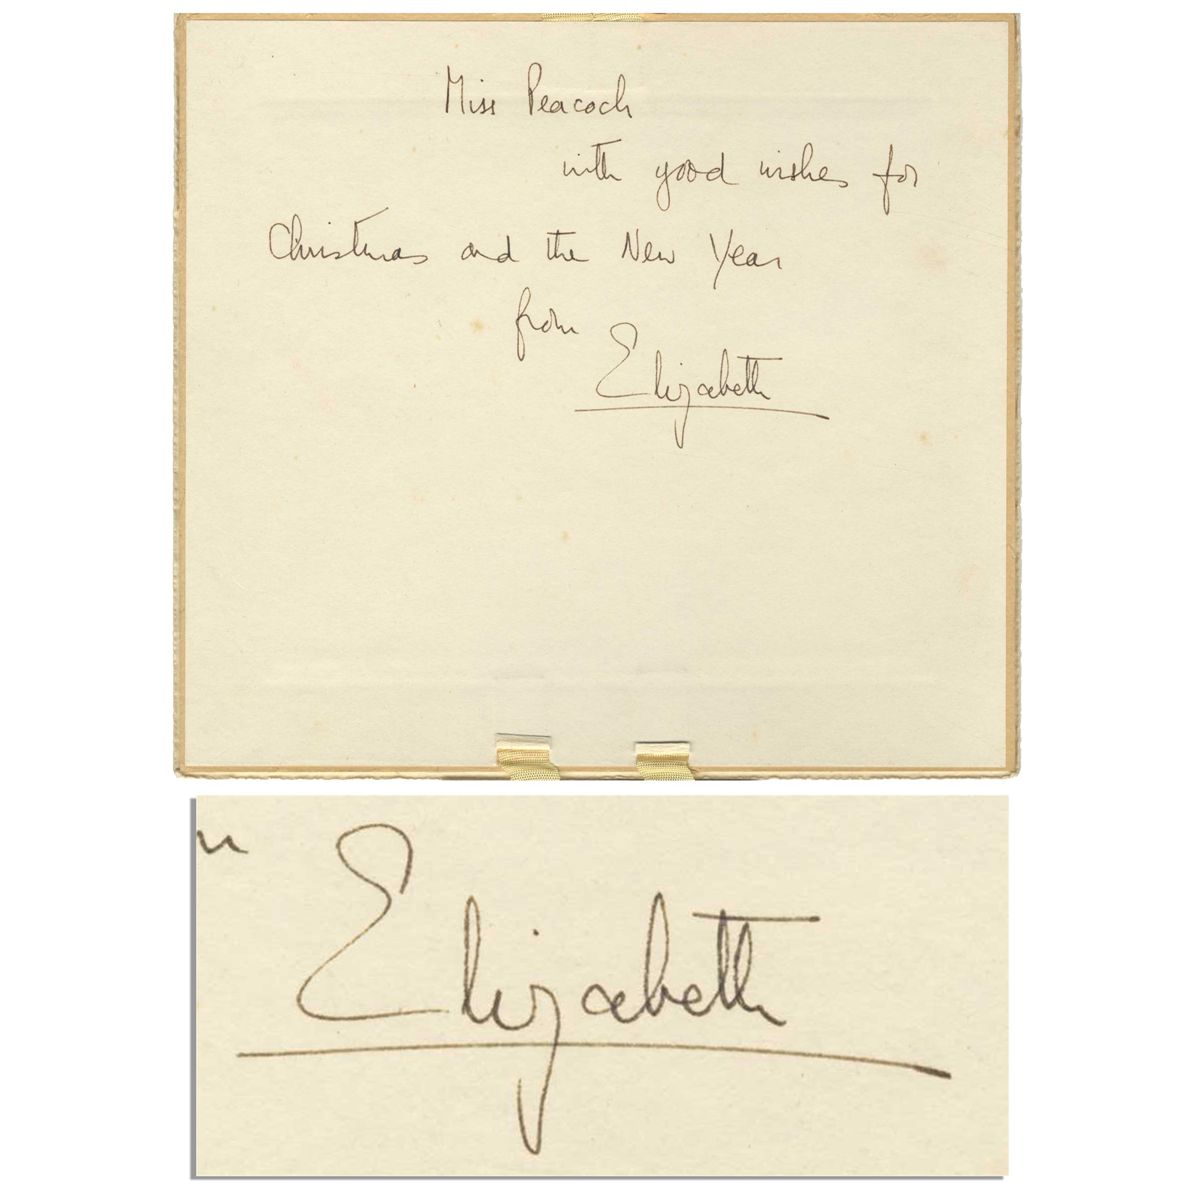 Miss Peacock
with good wishes for
Christmas and the New Year
from
Elizabeth
Elizabeth